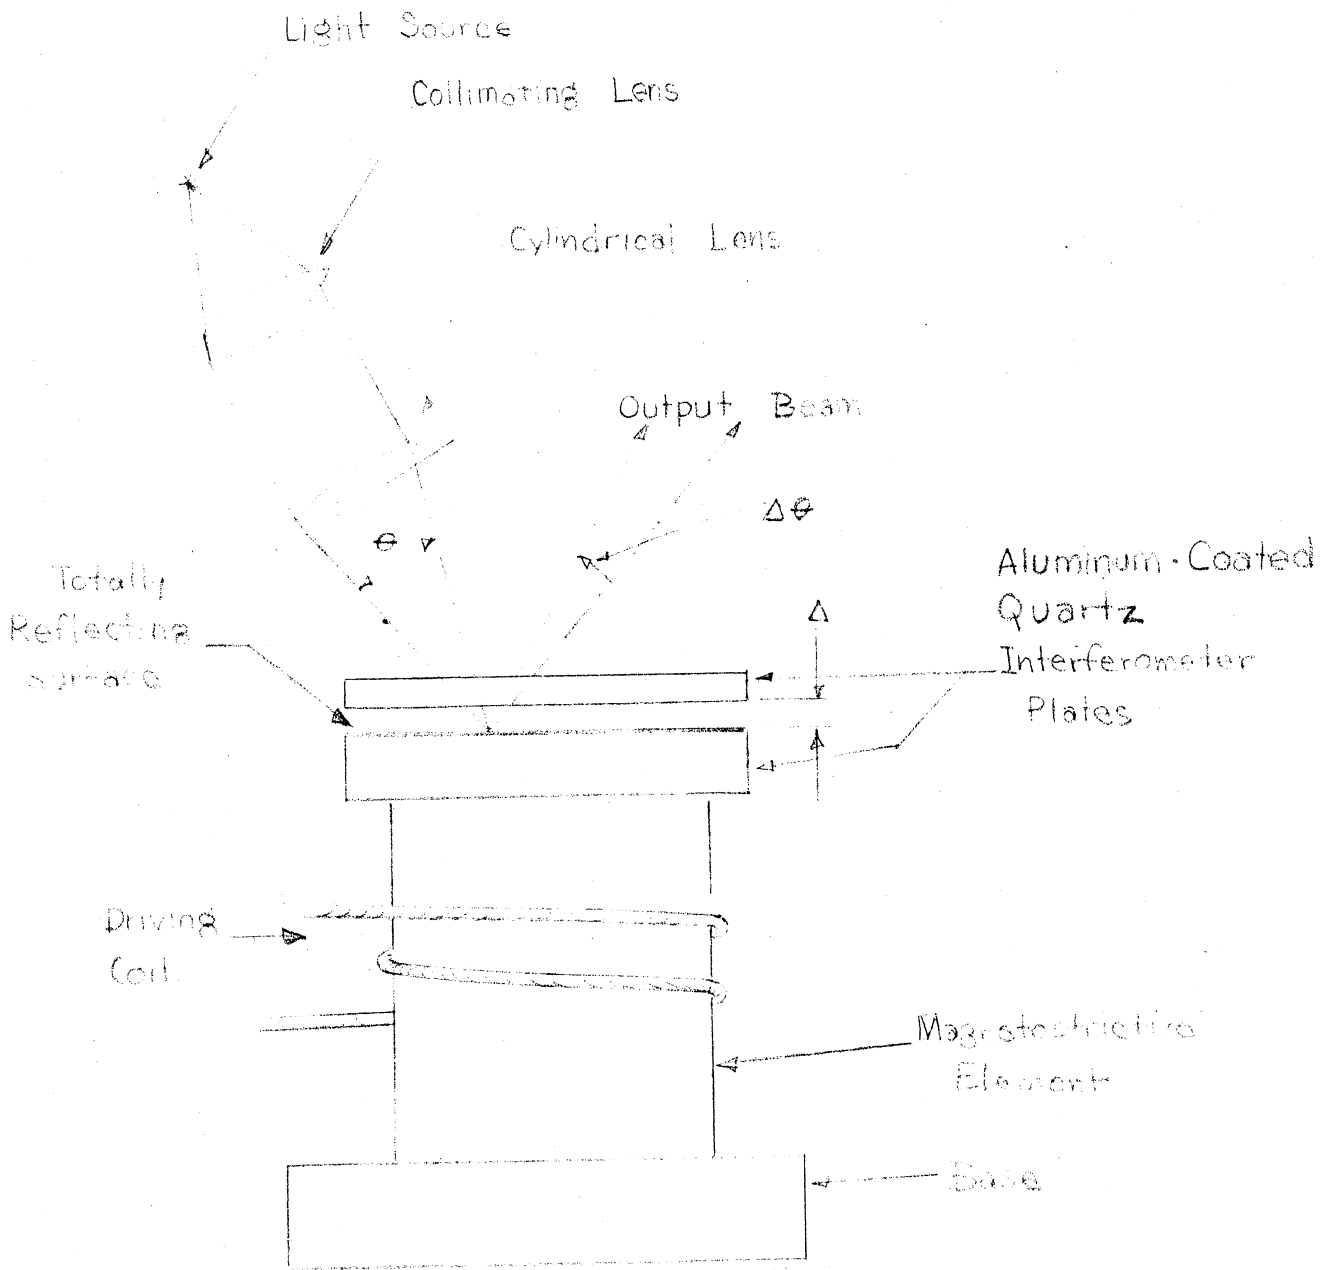 Light Source
Collimating Lens
Cylindrical Lens
Output Beam
Δθ
θ
Totally
Reflecting
Surface
Δ
Aluminum-Coated
Quartz
Interferometer
Plates
Driving
Coil
Magnetostrictive
Element
Base